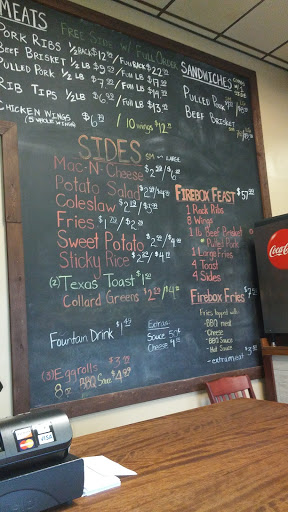 MEATS
FREE SIDE w/ FULL ORDER
PORK RIBS 1/2 RACK $12.99 / FULL RACK $22.99
BEEF BRISKET 1/2 LB $9.99 / FULL LB $17.99
PULLED PORK 1/2 LB $7.99 / FULL LB $14.99
RIB TIPS 1/2 LB $6.99 / FULL LB $13.99
CHICKEN WINGS $6.79 / 10 wings $12.99
(5 WHOLE WINGS)
SANDWICHES
PULLED PORK
BEEF BRISKET
SIDES
SM or LARGE
MAC-N-CHEESE
POTATO SALAD
COLESLAW
FRIES
SWEET POTATO
STICKY RICE
(2) TEXAS TOAST
COLLARD GREENS
FIREBOX FEAST $57.99
1 RACK RIBS
8 WINGS
1 LB BEEF BRISKET
or PULLED PORK
1 LARGE FRIES
4 TOAST
4 SIDES
FIREBOX FRIES
Fries topped with:
-BBQ MEAT
-CHEESE
-BBQ SAUCE
-HOT SAUCE
-extra meat
FOUNTAIN DRINK $1.49
EXTRAS
SAUCE 50¢
CHEESE
(3) EGGROLLS
8 oz BBQ SAUCE $4.99
Coca-Cola
MasterCard
VISA